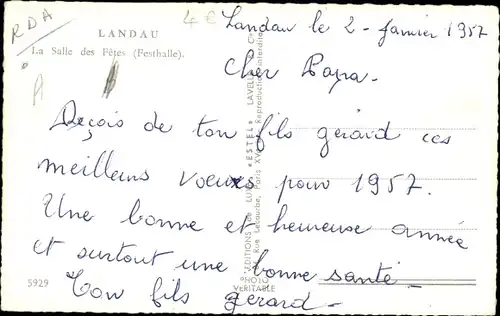 RDA
4 €
LANDAU
La Salle des Fêtes (Festhalle).
A
Landau le 2 - Janvier 1957
Cher Papa.
Reçois de ton fils gérard ces
meilleurs voeux pour 1957.
Une bonne et heureuse année
et surtout une bonne santé -
Ton fils gérard -
5929
EDITIONS de LUXE "ESTEL" LAVELLE
Rue Lecourbe, Paris XV
Reproduction interdite
PHOTO
VERITABLE